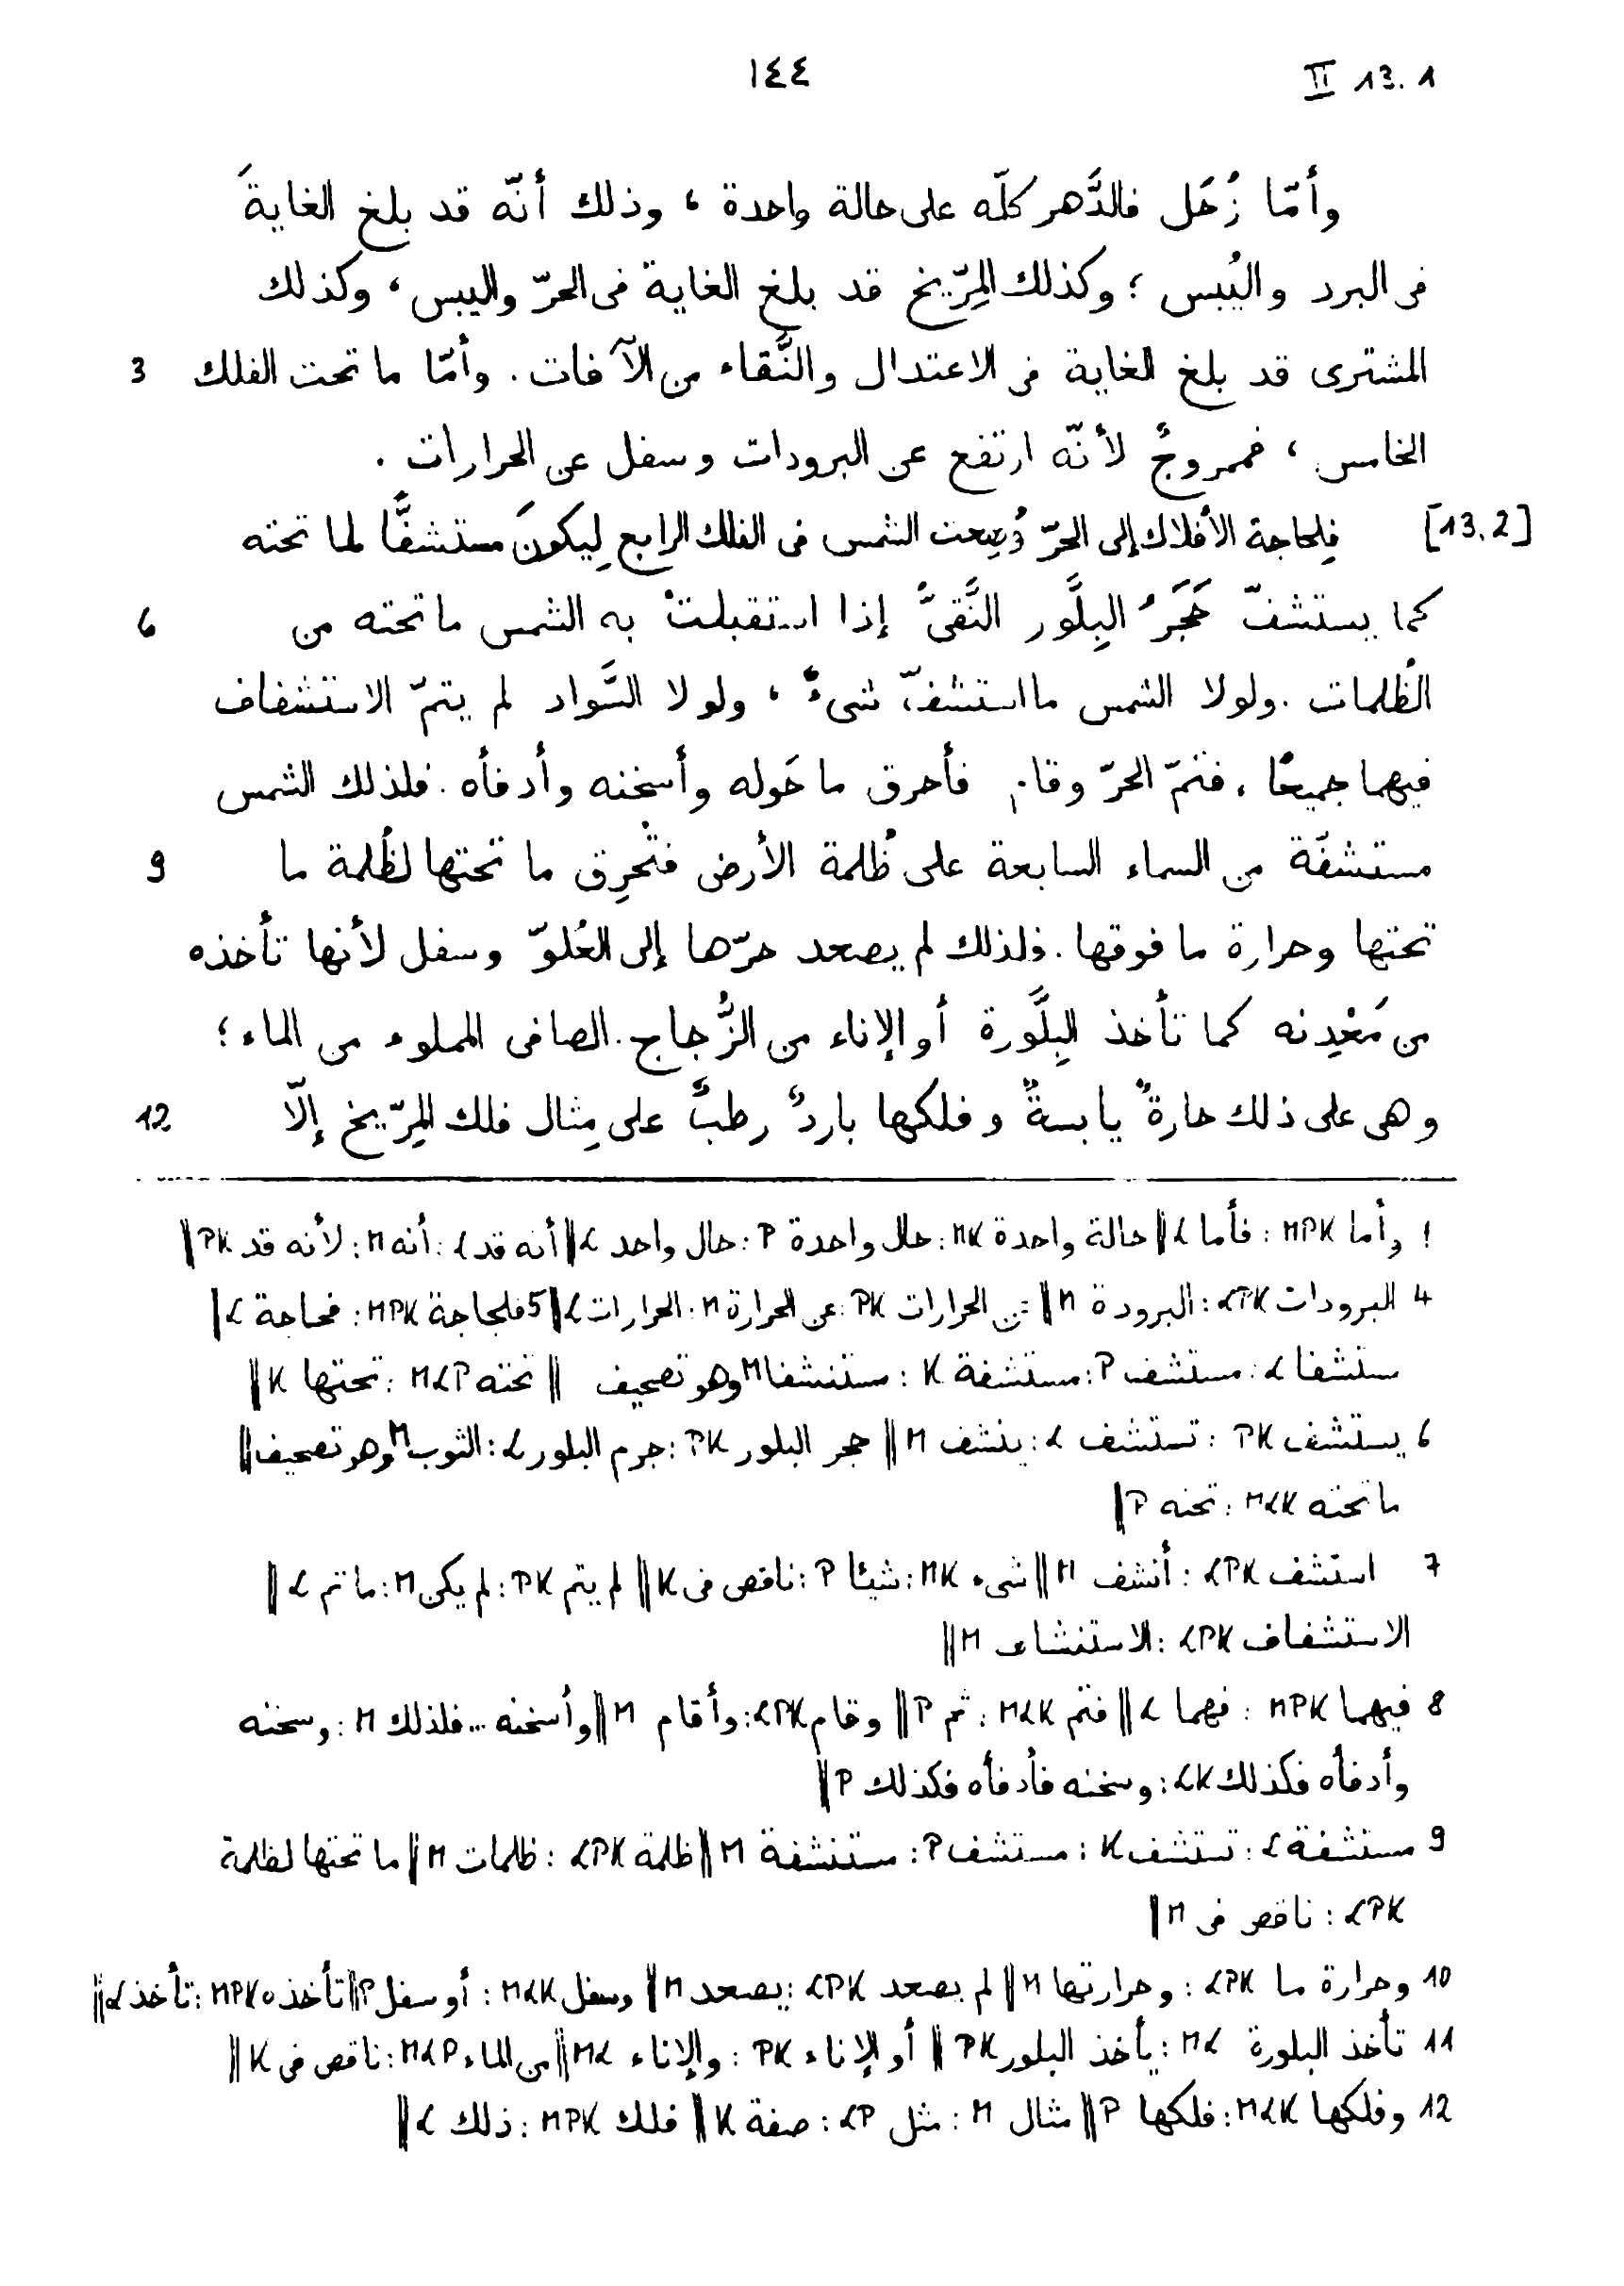 ١٤٤ II 13.1
وأمّا زُحَل فالدَّهر كلّه على حالة واحدة ، وذلك أنّه قد بلغ الغايةَ
فى البرد واليُبس ؛ وكذلك المِرّيخ قد بلغ الغاية فى الحرّ واليبس ، وكذلك
المشترى قد بلغ الغاية فى الاعتدال والنَّقاء من الآفات . وأمّا ما تحت الفلك 3
الخامس ، فممروجٌ لأنّه ارتفع عن البرودات وسفل عن الحرارات .
[13.2] فلِحاجة الأفلاك إلى الحرّ وُضِعت الشمس فى الفلك الرابع لِيكونَ مستشفًّا لما تحته
كما يستشفّ حَجَرُ البِلَّور النَّقىُّ إذا استقبلتْ به الشمس ما تحته من 6
الظُلمات . ولولا الشمس ما استشفّ شىءٌ ، ولولا السَّواد لم يتمّ الاستشفاف
فيهما جميعًا ، فتمّ الحرّ وقام فأحرق ما حَوله وأسخنه وأدفأه . فلذلك الشمس
مستشفّة من السماء السابعة على ظُلمة الأرض فتُحرِق ما تحتها لظُلمة ما 9
تحتها وحرارة ما فوقها . فلذلك لم يصعد حرّها إلى العُلوّ وسفل لأنها تأخذه
من مَعْدِنه كما تأخذ البِلَّورة أو الإناء من الزُّجاج . الصافى المملوء من الماء ؛
وهى على ذلك حارةٌ يابسةٌ وفلكها باردٌ رطبٌ على مِثال فلك المِرّيخ إلّا 12
١ وأما MPK : فأما L ‖ حالة واحدة MK : حال واحدة P : حال واحد L ‖ أنه قد L : أنه M : لأنه قد PK ‖
4 البرودات LPK : البرودة M ‖ عن الحرارات PK : عن الحرارة M : الحرارات L ‖ 5 فلحاجة MPK : فحاجة L ‖
مستشفا L : مستشف P : مستشفة K : مستنشفا M وهو تصحيف ‖ تحته MLP : تحتها K ‖
6 يستشف PK : تستشف L : ينشف M ‖ حجر البلور PK : جرم البلور L : الثوب M وهو تصحيف ‖
ما تحته MLK : تحته P ‖
7 استشف LPK : أنشف M ‖ شىء MK : شيئا P : ناقص فى K ‖ لم يتم PK : لم يكن M : ما تم L ‖
الاستشفاف LPK : الاستنشاف M ‖
8 فيهما MPK : فهما L ‖ فتم MLK : ثم P ‖ وقام LPK : وأقام M ‖ وأسخنه ... فلذلك M : وسخنه
وأدفأه فكذلك LK : وسخنه فأدفأه فكذلك P ‖
9 مستشفة L : تستشف K : مستشف P : مستنشفة M ‖ ظلمة LPK : ظلمات M ‖ ما تحتها لظلمة
LPK : ناقص فى M ‖
10 وحرارة ما LPK : وحرارتها M ‖ لم يصعد LPK : يصعد M ‖ وسفل MLK : أو سفل P ‖ تأخذه MPK : تأخذ L ‖
11 تأخذ البلورة ML : يأخذ البلور PK ‖ أو الإناء PK : والإناء ML ‖ من الماء MLP : ناقص فى K ‖
12 وفلكها MLK : فلكها P ‖ مثال M : مثل LP : صفة K ‖ فلك MPK : ذلك L ‖